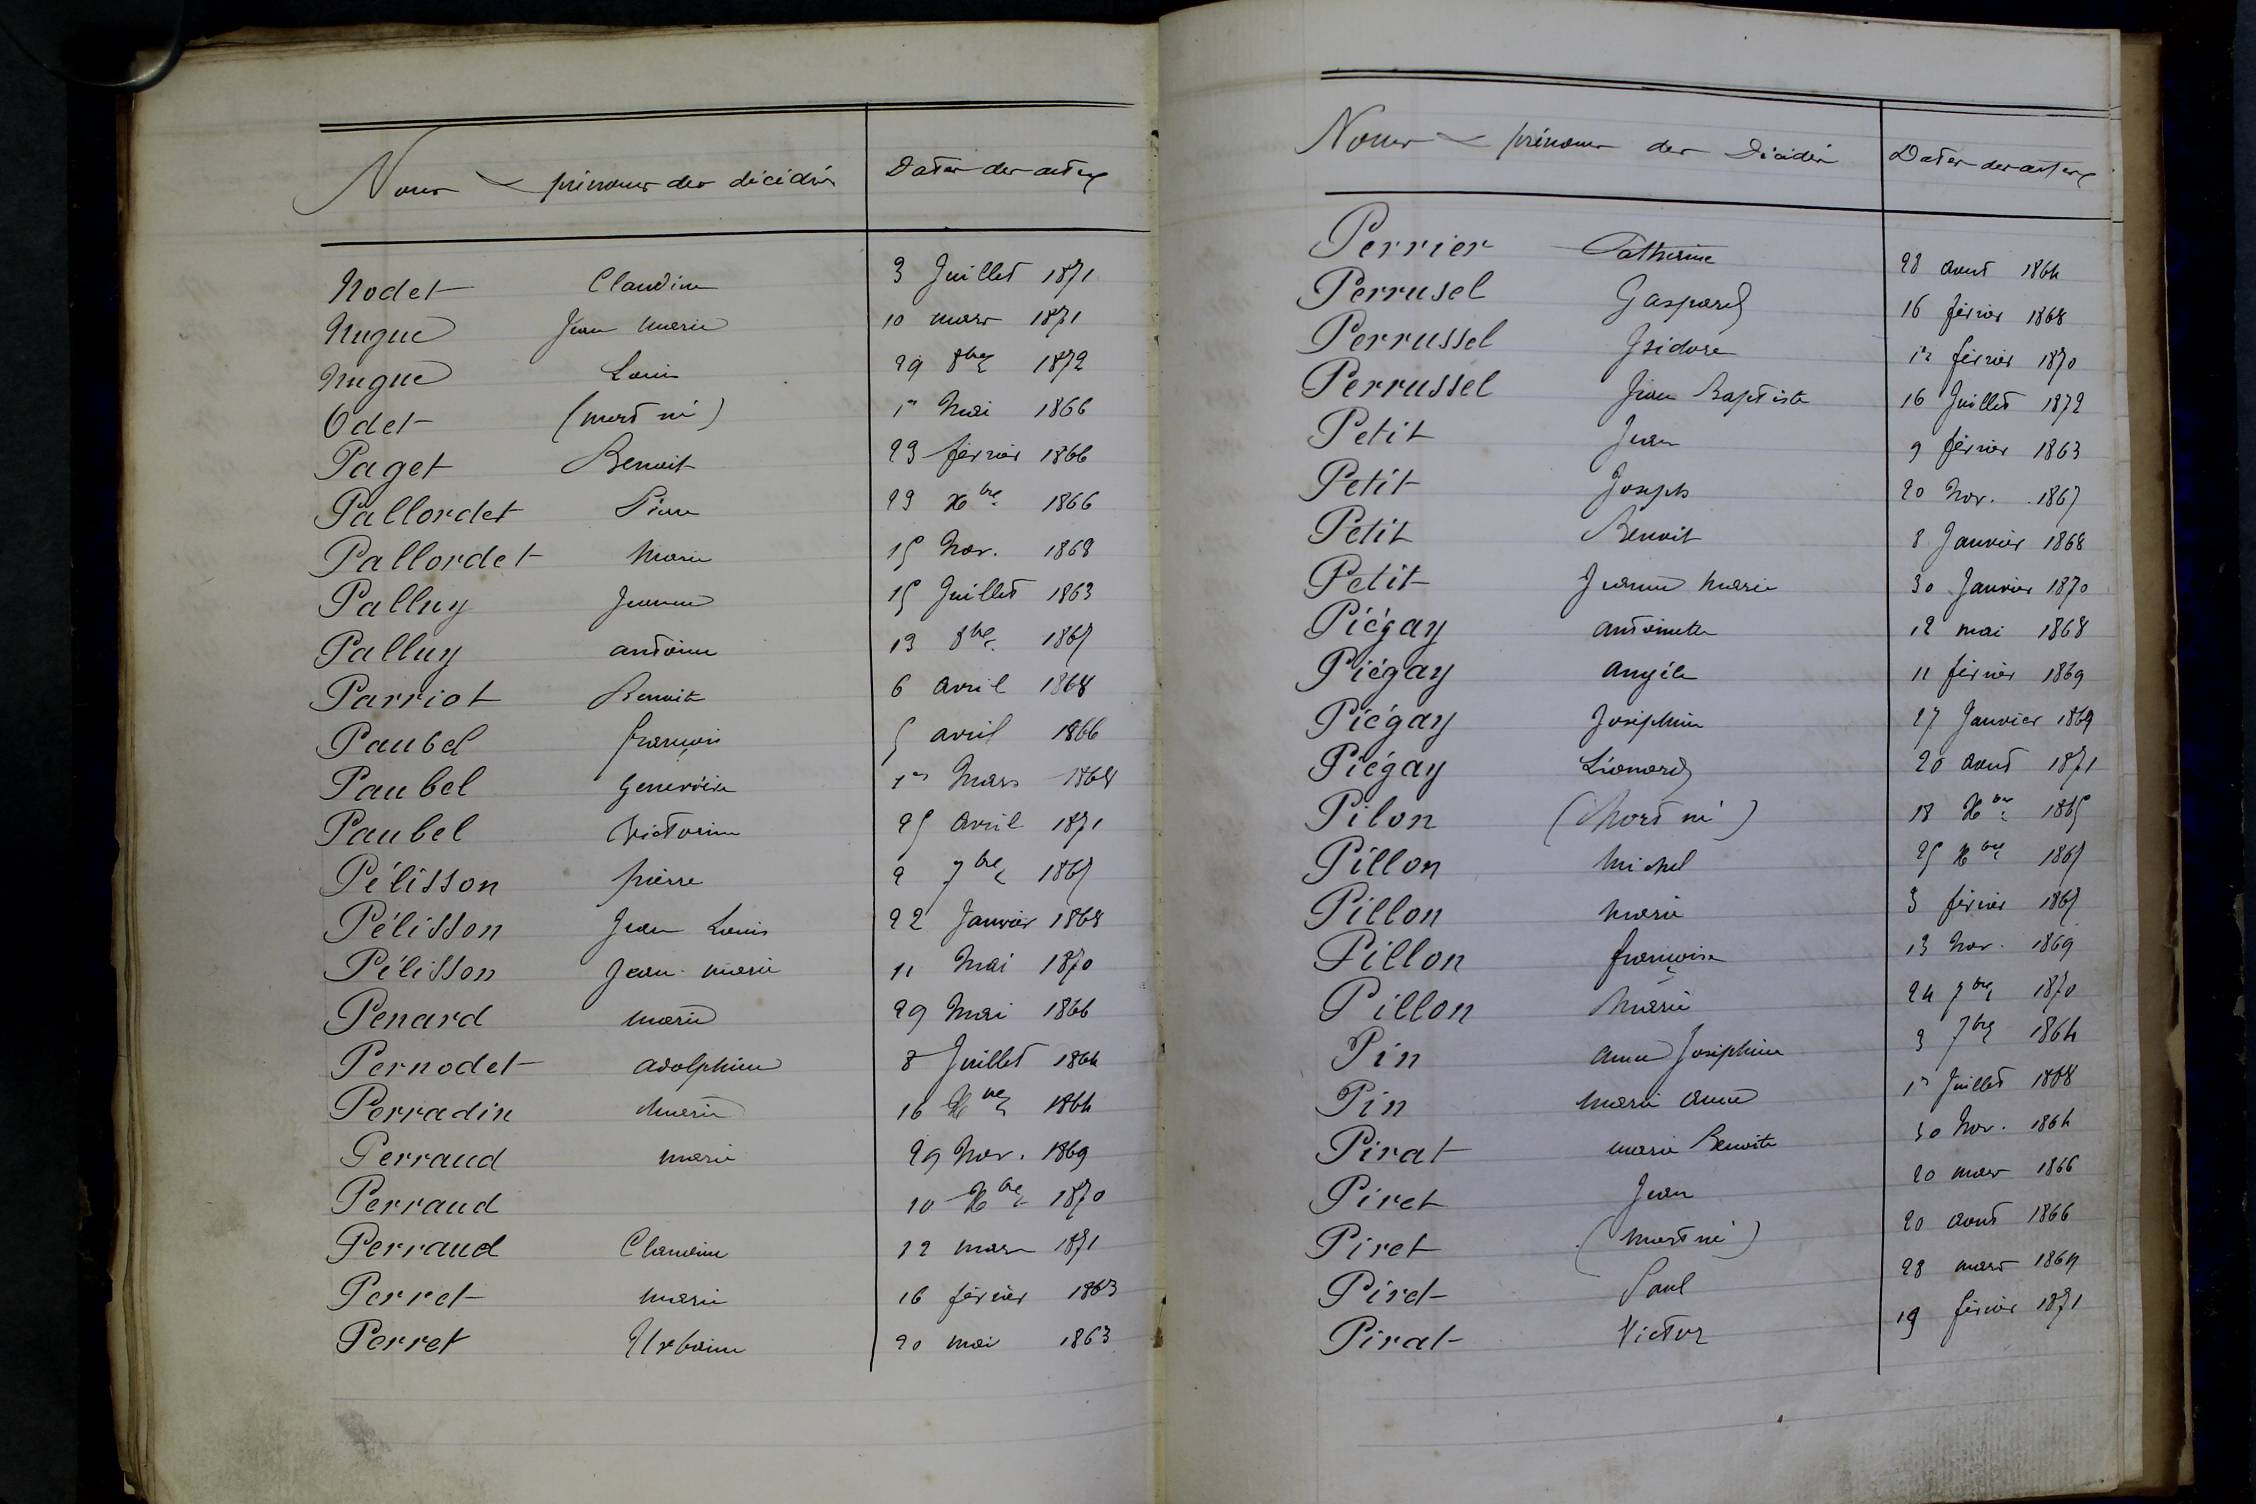 Noms & prénoms des décédés Dates des actes
Nodet Claudine 3 Juillet 1871
Nugue Jean Marie 10 mars 1871
Nugue Louis 29 8bre 1872
Odet (mort né) 1er Mai 1866
Paget Benoit 23 février 1866
Pallordet Pierre 23 Xbre 1866
Pallordet Marie 15 Nov. 1868
Palluy Jeanne 15 Juillet 1863
Palluy antoine 13 8bre 1867
Parriot Benoit 6 avril 1868
Paubel françois 5 avril 1866
Paubel Geneviève 1er Mars 1868
Paubel Victorine 25 avril 1871
Pélisson pierre 2 7bre 1867
Pélisson Jean Louis 22 Janvier 1868
Pélisson Jean-marie 11 Mai 1870
Penard marie 29 Mai 1866
Pernodet adolphine 8 Juillet 1864
Perradin Marie 16 Xbre 1864
Perraud marie 29 Nov. 1869
Perraud 10 Xbre 1870
Perraud Claudine 12 mars 1871
Perret Marie 16 février 1863
Perret Urbaine 20 mai 1863
Noms & prénoms des Décédés Dates des actes
Perrier Catherine 28 aout 1864
Perrusel Gaspard 16 février 1868
Perrussel Isidore 1er février 1870
Perrussel Jean Baptiste 16 Juillet 1872
Petit Jean 9 février 1863
Petit Joseph 20 Nov. 1867
Petit Benoit 8 Janvier 1868
Petit Jeanne Marie 30 Janvier 1870
Piégay antoinette 12 mai 1868
Piégay angèle 11 février 1869
Piégay Joséphine 27 Janvier 1869
Piégay Léonard 20 aout 1871
Pilon (Mort né) 18 Xbre 1865
Pillon Michel 25 Xbre 1867
Pillon Marie 3 février 1867
Pillon françoise 13 Nov. 1869
Pillon Marie 24 7bre 1870
Pin anne Joséphine 3 7bre 1864
Pin Marie anne 1er Juillet 1868
Pirat marie Benoite 30 Nov. 1864
Piret Jean 20 mars 1866
Piret (mort né) 20 aout 1866
Piret Paul 28 mars
Pirat Victor 19 février 1871